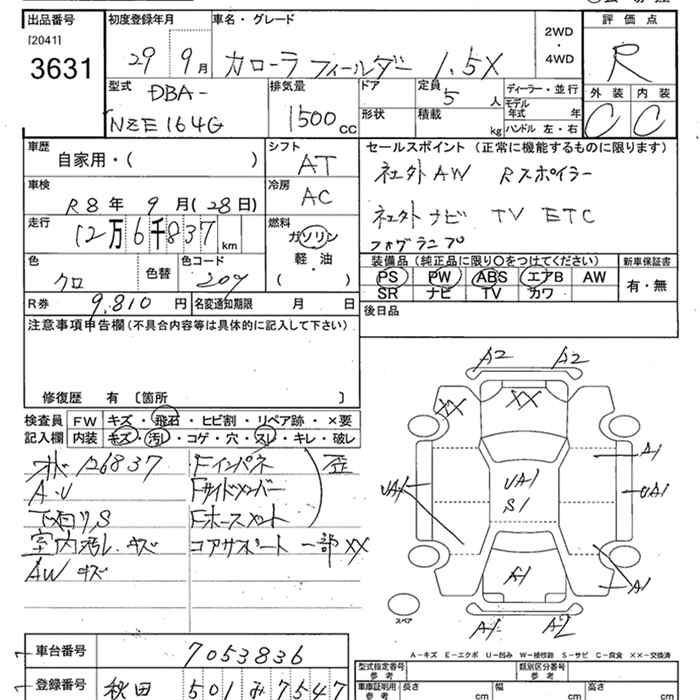 出品番号 初度登録年月 車名・グレード 2WD・4WD 評価点
[2041]
3631 29 9月 カローラ フィールダー 1.5X R
型式 排気量 ドア 定員 ディーラー・並行 外装 内装
DBA- 5人 モデル年式 年
NZE164G 1500cc 形状 積載 kg ハンドル 左・右 C C
車歴 シフト セールスポイント (正常に機能するものに限ります)
自家用・( ) AT 社外AW Rスポイラー
車検 冷房
R8年 9月(28日) AC 社外ナビ TV ETC
走行 燃料 フォグランプ
12万6千837km ガソリン 軽・油 ( )
装備品(純正品に限り○をつけてください) 新車保証書
色 色替 色コード PS PW ABS エアB AW 有・無
クロ 209 SR ナビ TV カワ
R券 9,810円 名変通知期限 月 日 後日品
注意事項申告欄(不具合内容等は具体的に記入して下さい)
修復歴 有 〔箇所 〕
検査員記入欄 FW キズ・飛石・ヒビ割・リペア跡・×要
内装 キズ・汚レ・コゲ・穴・スレ・キレ・破レ
水 126837 Fインパネ 歪
A・U Fサイドメンバー
下回りS Fホースメント
室内汚レ キズ コアサポート 一部XX
AWキズ
A2 A2
XX XX
A1
UA1 UA1 UA1
S1
A1 A1
A1 A2
スペア
A-キズ E-エクボ U-凹み W-補修跡 S-サビ C-腐食 XX-交換済
車台番号 7053836
登録番号 秋田 501 み 7547
型式指定番号 参考 類別区分番号 参考
車庫証明用 参考 長さ cm 幅 cm 高さ cm